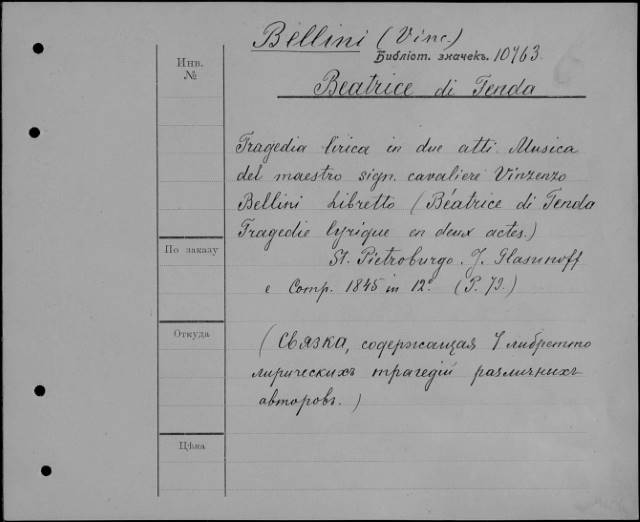 Bellini (Vinc.)
Библіот. значекъ. 10763.
Инв.
№
Beatrice di Tenda
Tragedia lirica in due atti. Musica
del maestro sign. cavaliere Vinzenzo
Bellini Libretto (Béatrice di Tenda
Tragedie lyrique en deux actes.)
По заказу
St. Pietroburgo. J. Glasunoff
e Comp. 1845 in 12º (P. 79.)
Откуда
(Связка, содержащая 7 либретто
лирическихъ трагедій различныхъ
авторовъ.)
Цѣна